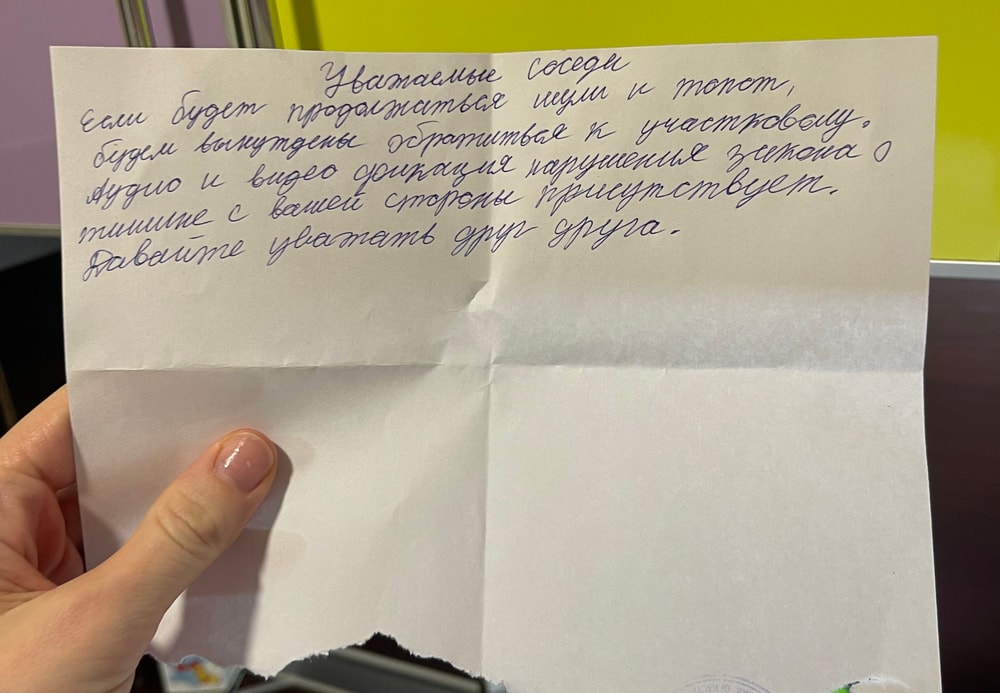 Уважаемые соседи
Если будет продолжаться шум и топот,
будем вынуждены обратиться к участковому.
Аудио и видео фиксация нарушения закона о
тишине с вашей стороны присутствует.
Давайте уважать друг друга.